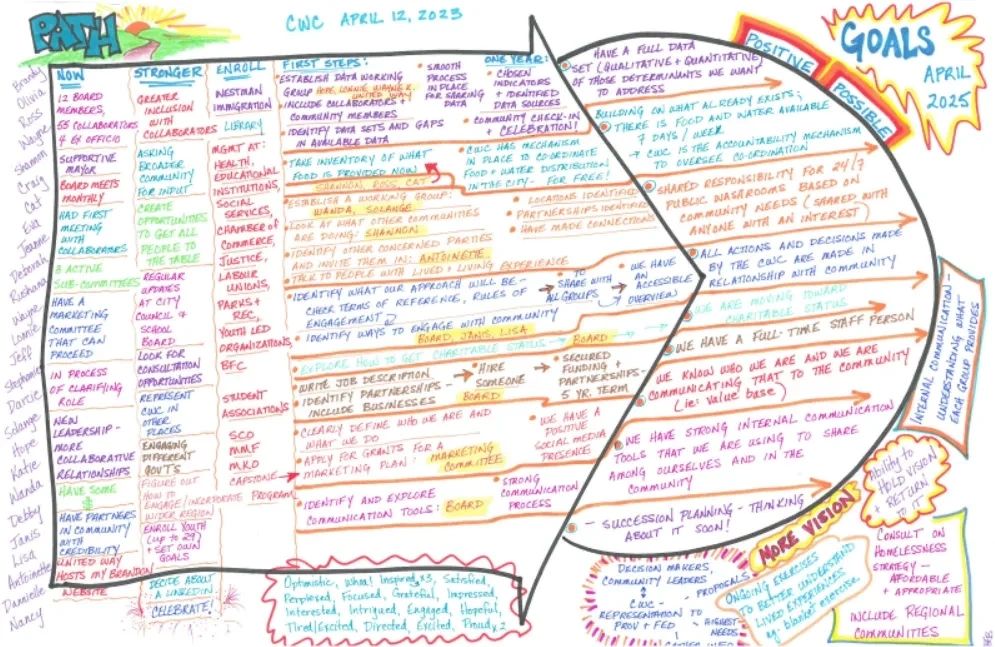 PATH
CWC APRIL 12, 2023
Brandy
Olivia
Ross
Wayne
Shannon
Craig
Cat
Eva
Jeannie
Deborah
Rushana
Wayne
Lonnie
Jeff
Stephanie
Darcie
Solange
Hope
Katie
Wanda
Debby
Janis
Lisa
Antoinette
Dannielle
Nancy
NOW
12 BOARD
MEMBERS,
55 COLLABORATORS
4 EX OFFICIO
SUPPORTIVE
MAYOR
BOARD MEETS
MONTHLY
HAD FIRST
MEETING
WITH
COLLABORATORS
8 ACTIVE
SUB-COMMITTEES
HAVE A
MARKETING
COMMITTEE
THAT CAN
PROCEED
IN PROCESS
OF CLARIFYING
ROLE
NEW
LEADERSHIP -
MORE
COLLABORATIVE
RELATIONSHIPS
HAVE SOME
$
HAVE PARTNERS
IN COMMUNITY
WITH
CREDIBILITY
UNITED WAY
HOSTS MY BRANDON
WEBSITE
STRONGER
GREATER
INCLUSION
WITH
COLLABORATORS
ASKING
BROADER
COMMUNITY
FOR INPUT
CREATE
OPPORTUNITIES
TO GET ALL
PEOPLE TO
THE TABLE
REGULAR
UPDATES
AT CITY
COUNCIL &
SCHOOL
BOARD
LOOK FOR
CONSULTATION
OPPORTUNITIES
REPRESENT
CWC IN
OTHER
PLACES
ENGAGING
DIFFERENT
GOV'T'S
FIGURE OUT
HOW TO
ENGAGE/INCORPORATE
WIDER REGION
ENROLL YOUTH
(up to 29)
+ SET OWN
GOALS
DECIDE ABOUT
A LINKEDIN
CELEBRATE!
ENROLL
WESTMAN
IMMIGRATION
LIBRARY
MGMT AT:
HEALTH,
EDUCATIONAL
INSTITUTIONS,
SOCIAL
SERVICES,
CHAMBER OF
COMMERCE,
JUSTICE,
LABOUR
UNIONS,
PARKS +
REC,
YOUTH LED
ORGANIZATIONS,
BFC
STUDENT
ASSOCIATIONS
SCO
MMF
MKO
CAPSTONE
PROGRAM
FIRST STEPS:
ESTABLISH DATA WORKING
GROUP HOPE, LONNIE WAYNE K.
UNITED WAY
INCLUDE COLLABORATORS +
COMMUNITY MEMBERS
IDENTIFY DATA SETS AND GAPS
IN AVAILABLE DATA
SMOOTH
PROCESS
IN PLACE
FOR SHARING
DATA
ONE YEAR:
CHOSEN
INDICATORS
+ IDENTIFIED
DATA SOURCES
COMMUNITY CHECK-IN
+ CELEBRATION!
TAKE INVENTORY OF WHAT
FOOD IS PROVIDED NOW
SHANNON, ROSS, CAT
CWC HAS MECHANISM
IN PLACE TO CO-ORDINATE
FOOD + WATER DISTRIBUTION
IN THE CITY - FOR FREE!
ESTABLISH A WORKING GROUP:
WANDA, SOLANGE
LOOK AT WHAT OTHER COMMUNITIES
ARE DOING: SHANNON
IDENTIFY OTHER CONCERNED PARTIES
AND INVITE THEM IN: ANTOINETTE
TALK TO PEOPLE WITH LIVED + LIVING EXPERIENCE
LOCATIONS IDENTIFIED
PARTNERSHIPS IDENTIFIED
HAVE MADE CONNECTIONS
IDENTIFY WHAT OUR APPROACH WILL BE -
CHECK TERMS OF REFERENCE, RULES OF
ENGAGEMENT
IDENTIFY WAYS TO ENGAGE WITH COMMUNITY
BOARD, JANIS, LISA
TO
SHARE WITH
ALL GROUPS
WE HAVE
AN
ACCESSIBLE
OVERVIEW
EXPLORE HOW TO GET CHARITABLE STATUS → BOARD
WRITE JOB DESCRIPTION
IDENTIFY PARTNERSHIPS -
INCLUDE BUSINESSES
HIRE
SOMEONE
BOARD
SECURED
FUNDING
PARTNERSHIPS -
5 YR. TERM
CLEARLY DEFINE WHO WE ARE AND
WHAT WE DO
APPLY FOR GRANTS FOR A
MARKETING PLAN: MARKETING
COMMITTEE
WE HAVE A
POSITIVE
SOCIAL MEDIA
PRESENCE
IDENTIFY AND EXPLORE
COMMUNICATION TOOLS: BOARD
STRONG
COMMUNICATION
PROCESS
Optimistic, Wham! Inspired x3, Satisfied,
Perplexed, Focused, Grateful, Impressed
Interested, Intrigued, Engaged, Hopeful,
Tired/Excited, Directed, Excited, Proud x2
POSITIVE
POSSIBLE
GOALS
APRIL
2025
HAVE A FULL DATA
SET (QUALITATIVE + QUANTITATIVE)
OF THOSE DETERMINANTS WE WANT
TO ADDRESS
BUILDING ON WHAT ALREADY EXISTS;
THERE IS FOOD AND WATER AVAILABLE
7 DAYS / WEEK
→ CWC IS THE ACCOUNTABILITY MECHANISM
TO OVERSEE CO-ORDINATION
SHARED RESPONSIBILITY FOR 24/7
PUBLIC WASHROOMS BASED ON
COMMUNITY NEEDS (SHARED WITH
ANYONE WITH AN INTEREST)
ALL ACTIONS AND DECISIONS MADE
BY THE CWC ARE MADE IN
RELATIONSHIP WITH COMMUNITY
WE ARE MOVING TOWARD
CHARITABLE STATUS
WE HAVE A FULL-TIME STAFF PERSON
WE KNOW WHO WE ARE AND WE ARE
COMMUNICATING THAT TO THE COMMUNITY
(ie: value base)
WE HAVE STRONG INTERNAL COMMUNICATION
TOOLS THAT WE ARE USING TO SHARE
AMONG OURSELVES AND IN THE
COMMUNITY
- SUCCESSION PLANNING - THINKING
ABOUT IT SOON!
INTERNAL COMMUNICATION -
UNDERSTANDING WHAT
EACH GROUP PROVIDES
Ability to
HOLD VISION
+ RETURN
TO IT
MORE VISION
DECISION MAKERS,
COMMUNITY LEADERS
CWC -
REPRESENTATION TO
PROV + FED
- PROPOSALS
- HIGHEST
NEEDS
ONGOING EXERCISES
TO BETTER UNDERSTAND
LIVED EXPERIENCES
eg. blanket exercise.
CONSULT ON
HOMELESSNESS
STRATEGY -
AFFORDABLE
+ APPROPRIATE
INCLUDE REGIONAL
COMMUNITIES